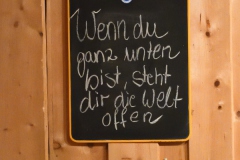 Wenn du
ganz unten
bist, steht
dir die Welt
offen